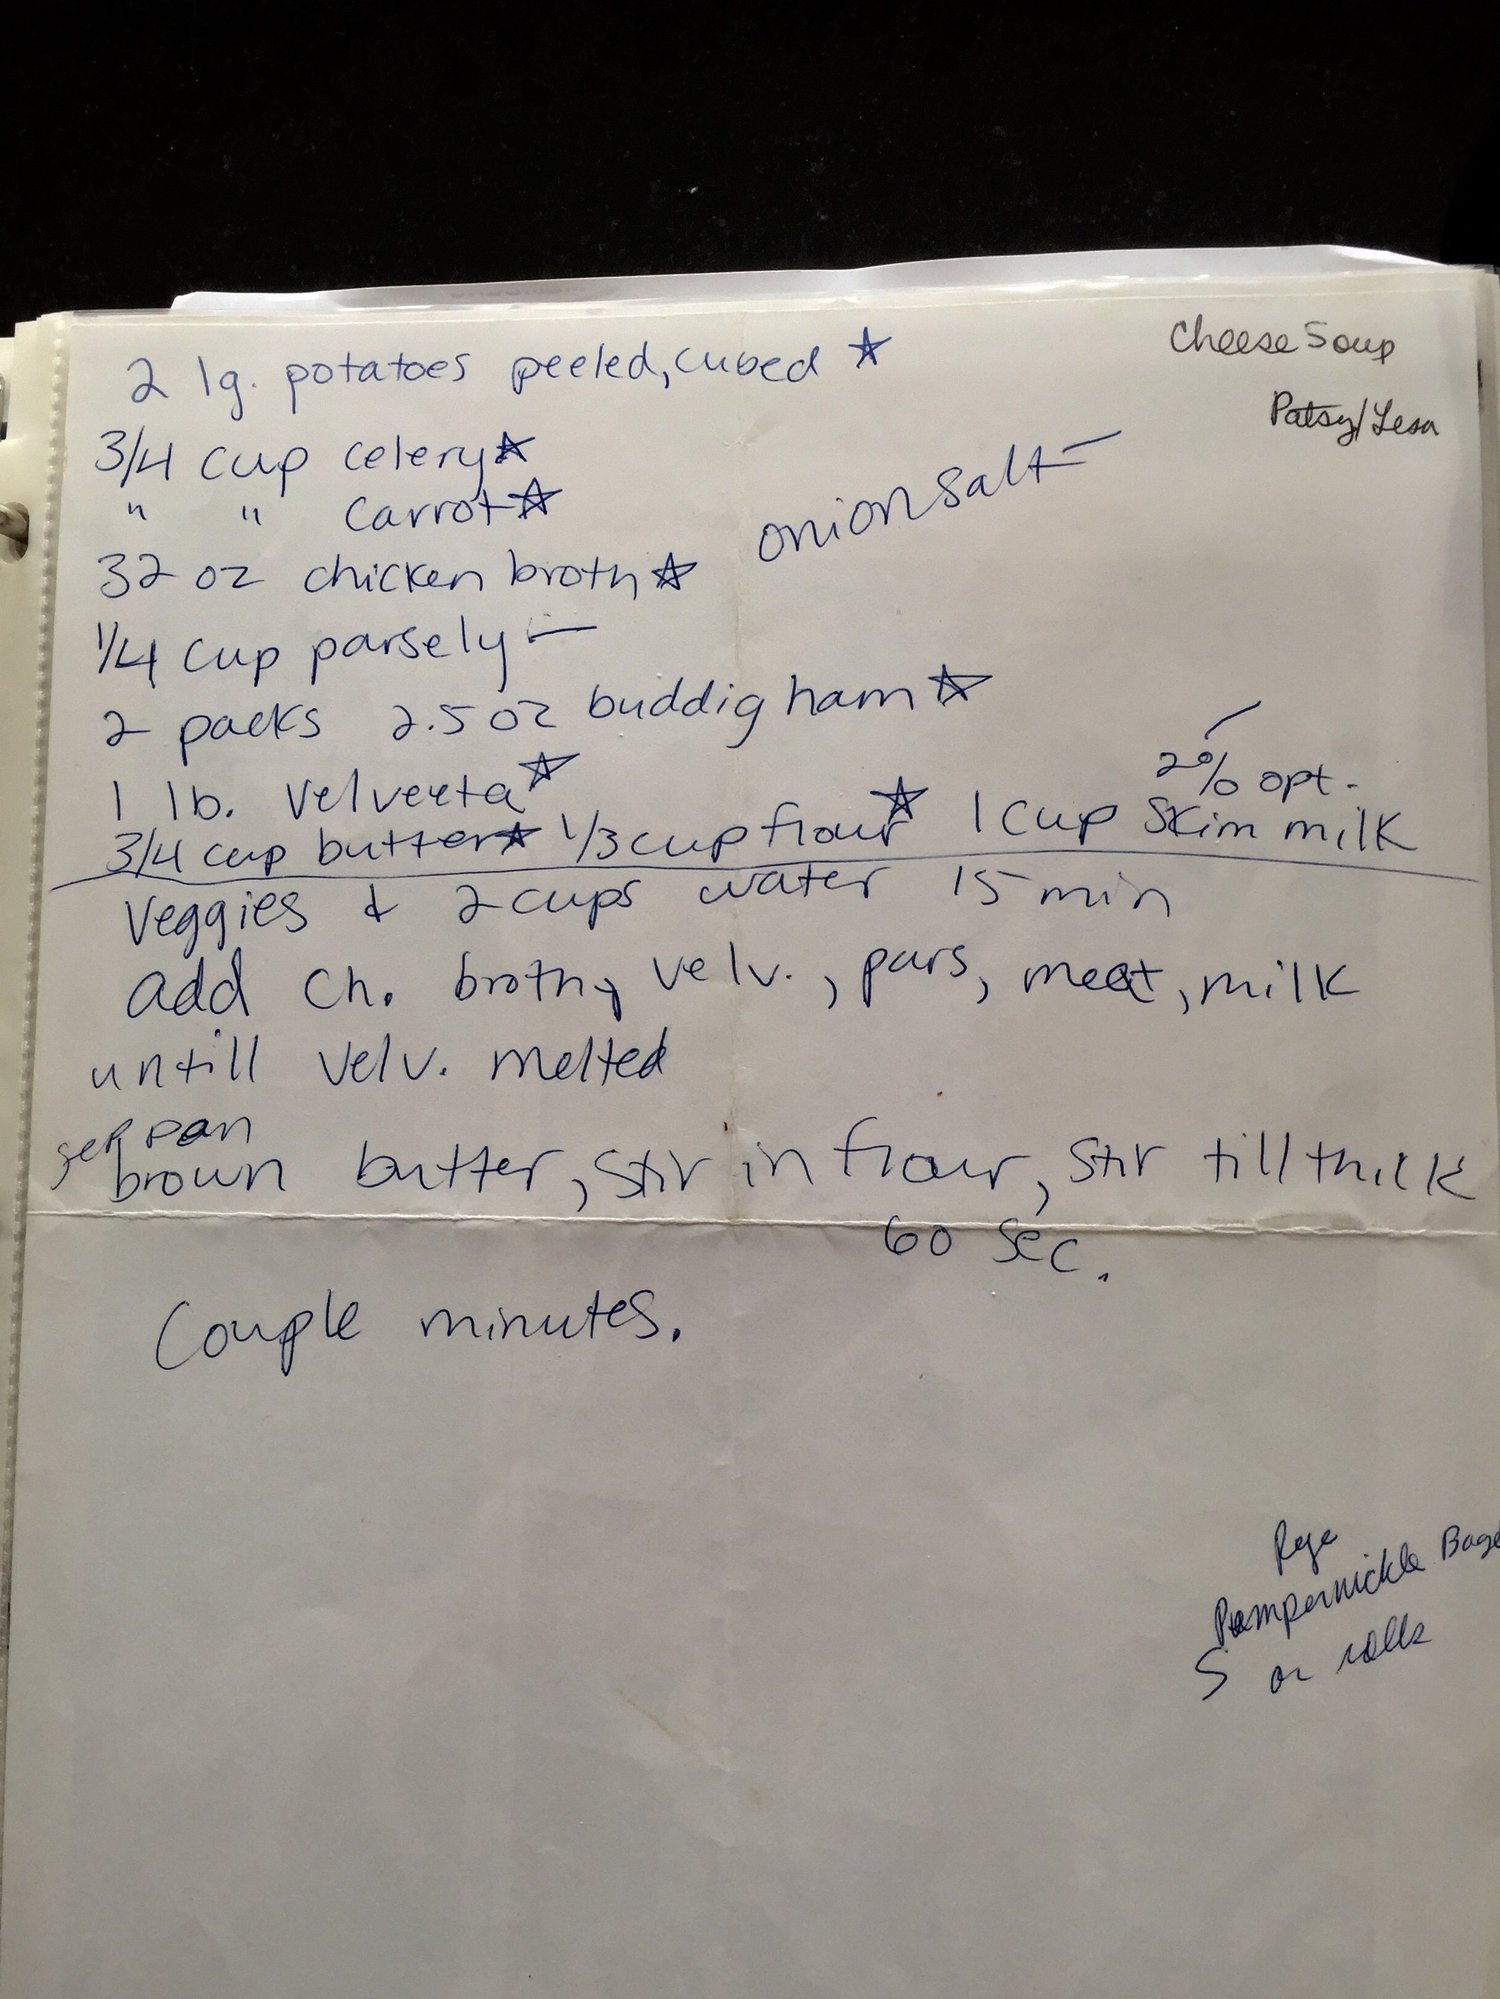 Cheese Soup
Patsy/Lesa
2 lg. potatoes peeled, cubed ☆
3/4 cup celery ☆
" " carrot ☆
onion salt –
32 oz chicken broth ☆
1/4 cup parsely –
2 packs 2.5 oz buddig ham ☆
1 lb. Velveeta ☆
2% opt.
3/4 cup butter ☆ 1/3 cup flour ☆ 1 cup skim milk
Veggies & 2 cups water 15 min
add Ch. broth, velv., pars, meat, milk
untill velv. melted
sep pan
brown butter, stir in flour, stir till thick
60 sec.
Couple minutes.
Rye
Pumpernickle Bage
S or rolls